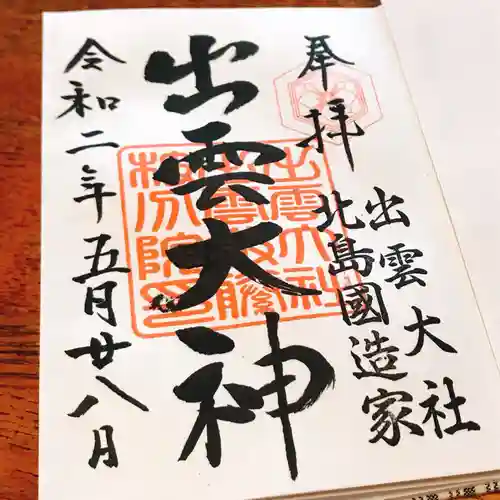 奉拝
出雲大社
北島國造家
出雲大神
令和二年五月廿八日
出雲大社